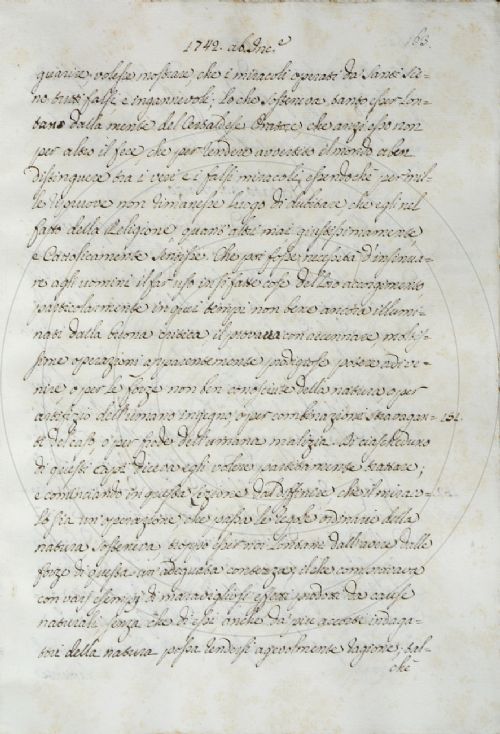 1742. ab Inc.e
163
guarire, volesse mostrare, che i miracoli operati da Santi sie-
no tutti falsi e ingannevoli; Lo che sosteneva tanto esser lon-
tano dalla mente del Certaldese Oratore, che anzi esso non
per altro il fece che per rendere avvertito il mondo a ben
distinguere tra i veri e i falsi miracoli, essendoche per mil-
le riprove non rimanesse luogo di dubitare che egli nel
fatto della Religione quant'altri mai giustissimamente,
e Cattolicamente sentisse. Che poi fosse necessità d'insinua-
re agli uomini il far uso in sì fatte cose della accorgimento
particolarmente in quei tempi non bene ancora illumi-
nati dalla buona critica, il provava con accennare moltis-
sime operazioni apparentemente prodigiose potere adive-
nire o per le forze non ben conosciute della natura o per
artifizio dell'umano ingegno, o per combinazioni stravagan-
151.
ti del caso, o per frode dell'umana malizia. Di ciascheduno
di questi capi diceva egli volere partitamente trattare;
e cominciando in questa Lezione dal diffinire che il mirac-
lo sia un'operazione che passa le regole ordinarie della
natura sosteneva troppo esser noi lontani dall'avere delle
forze di questa un'adequata contezza; il che comprovava
con varj esempj di maravigliosi effetti prodotti da cause
naturali senza che di essi anche da più accorti indaga-
tori della natura possa rendersi agevolmente ragione; tal-
chè